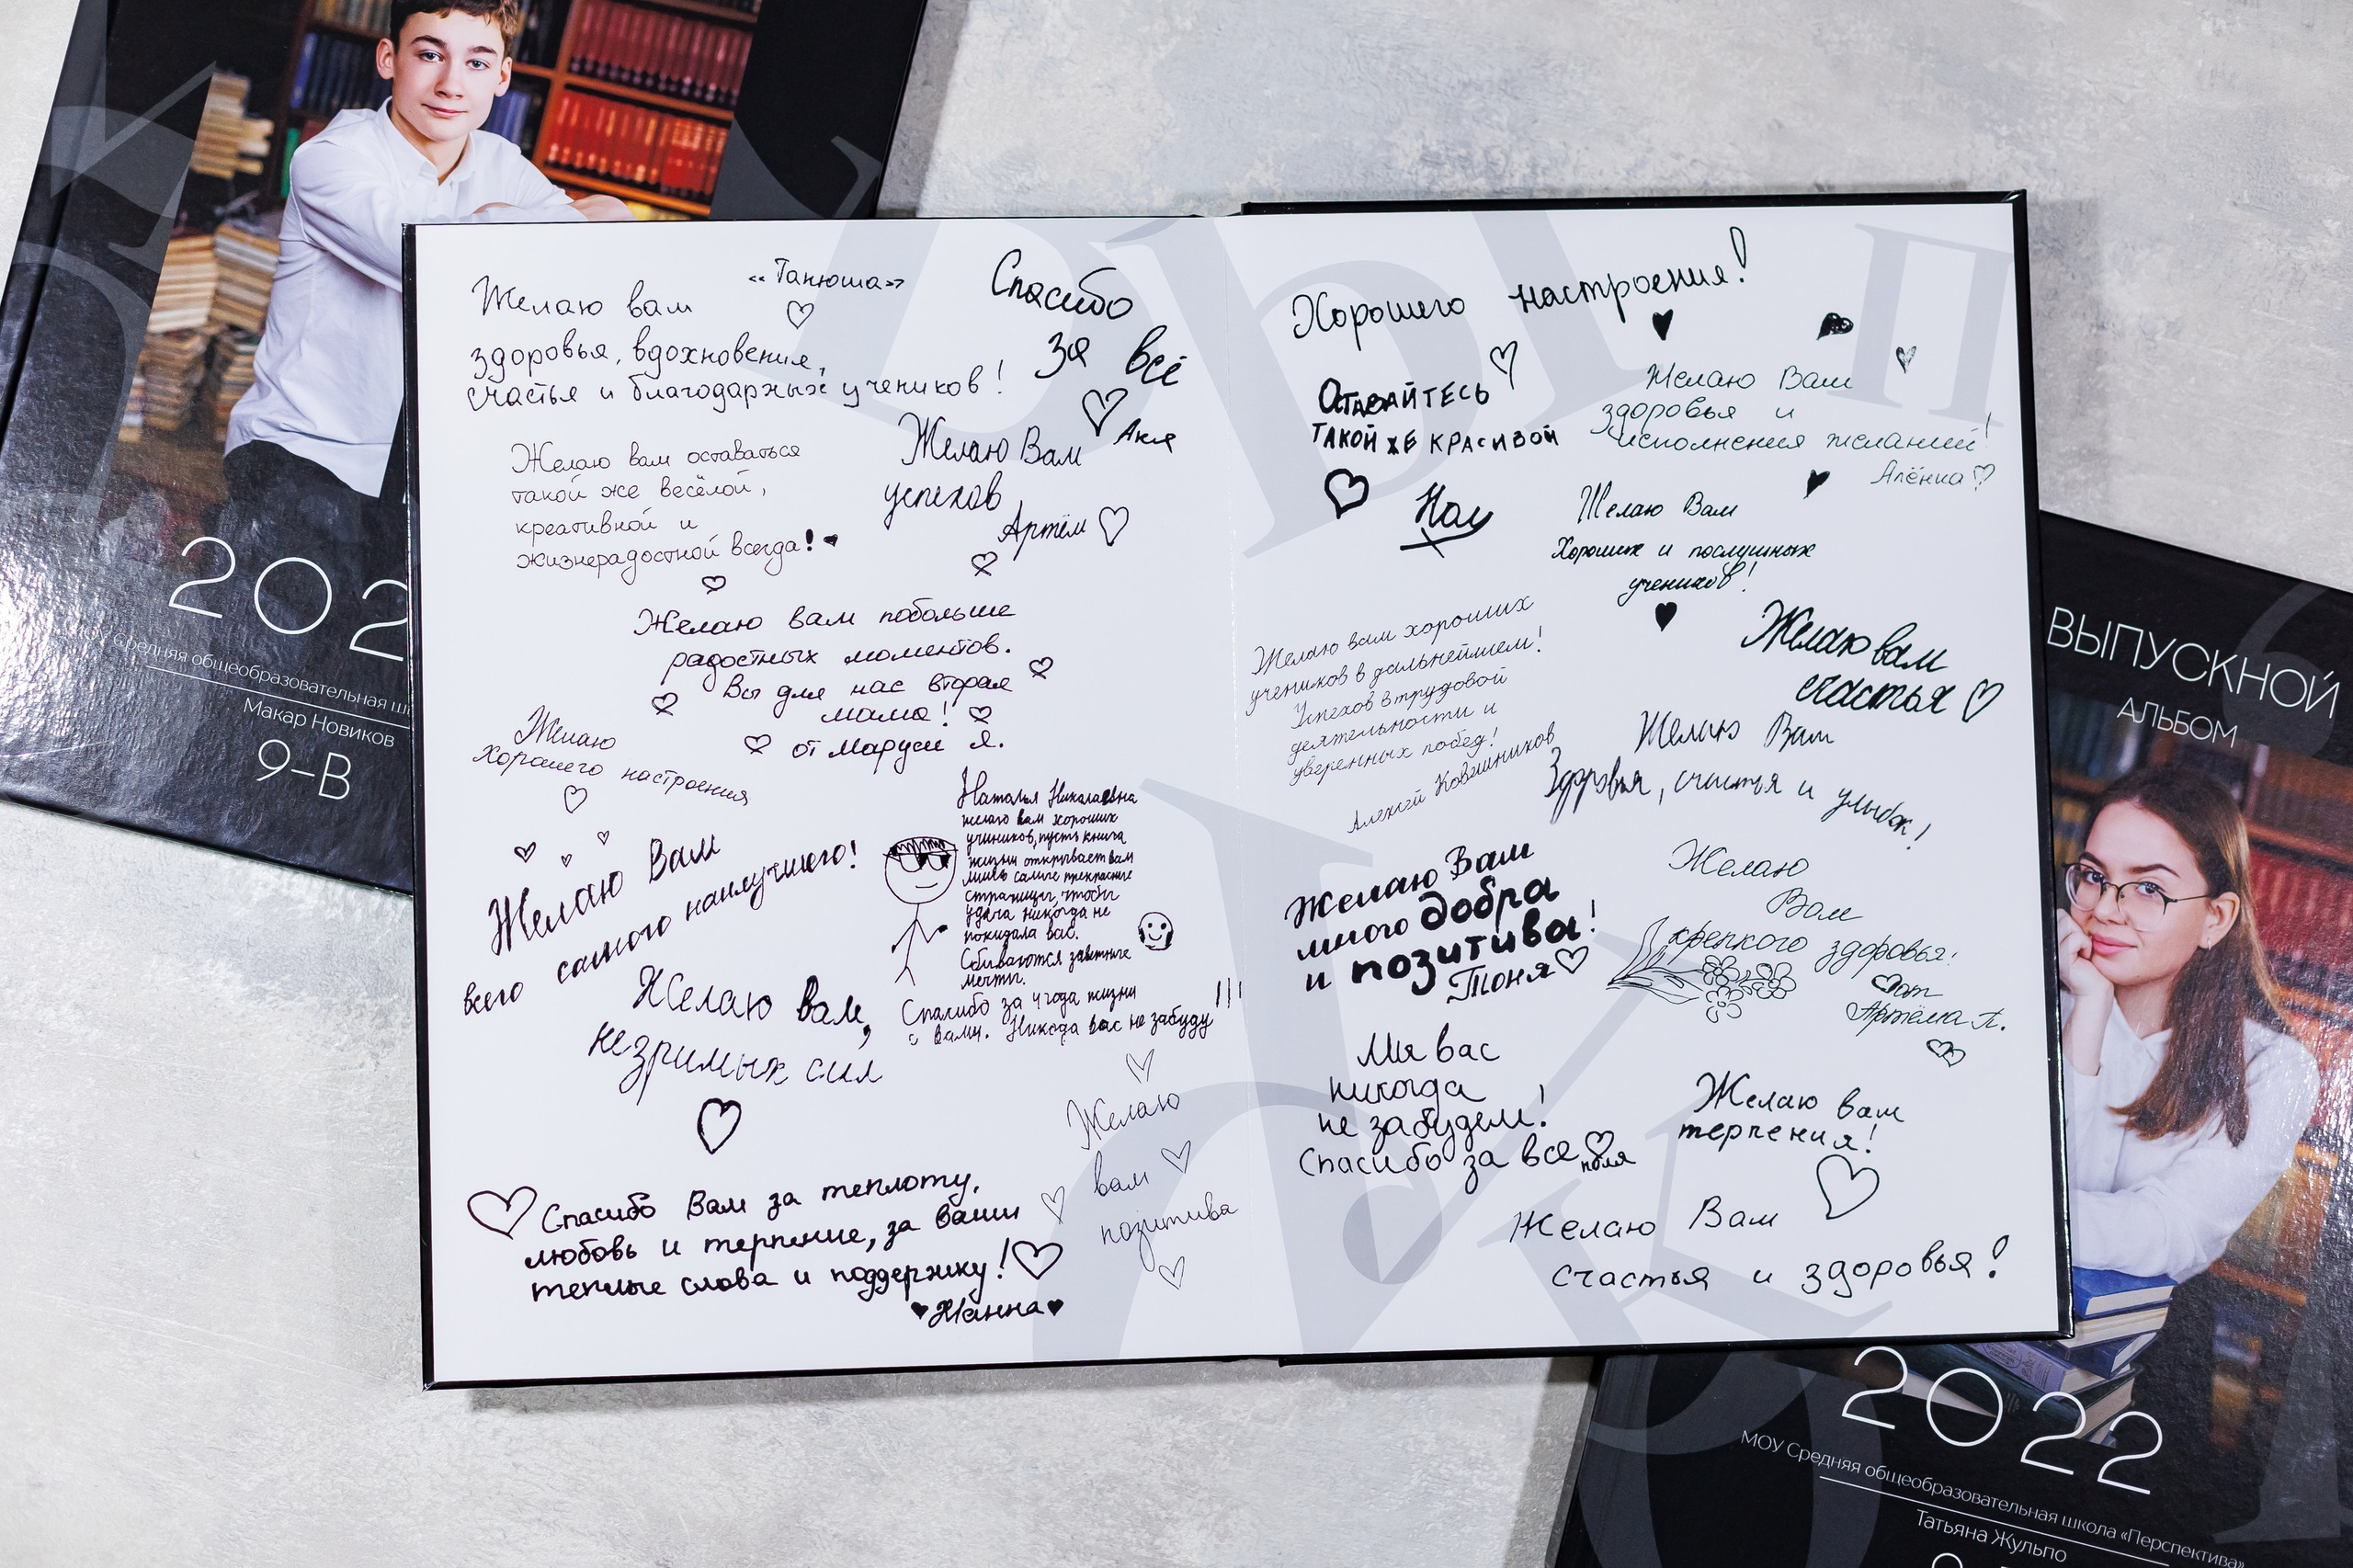 Желаю вам
здоровья, вдохновения,
счастья и благодарных учеников!
«Танюша»
Спасибо
за всё
Аня
Желаю вам оставаться
такой же весёлой,
креативной и
жизнерадостной всегда!
Желаю Вам
успехов
Артём
Желаю вам побольше
радостных моментов.
Вы для нас вторая
мама!
от Маруси Я.
Желаю
Хорошего настроения
Желаю Вам
всего самого наилучшего!
Наталья Николаевна
желаю вам хороших
учиников, пусть книга
жизни открывает вам
лишь самые прекрасные
страницы, чтобы
удача никогда не
покидала вас.
Сбываются заветные
мечты.
Спасибо за 4 года жизни
с вами. Никогда вас не забуду!!!
Желаю вам,
незримых сил
Желаю
вам
позитива
Спасибо Вам за теплоту,
любовь и терпение, за ваши
теплые слова и поддержку!
Жанна
Хорошего настроения!
Оставайтесь
такой же красивой
Желаю Вам
здоровья и
исполнения желаний!
Алёнка
Желаю Вам
Хороших и послушных
учеников!
Желаю вам хороших
учеников в дальнейшем!
Успехов в трудовой
деятельности и
уверенных побед!
Алексей Ковшиников
Желаю вам
счастья
Желаю Вам
Здоровья, счастья и улыбок!
Желаю Вам
много добра
и позитива!
Тоня
Желаю
Вам
крепкого здоровья!
от
Артёма Л.
Мы вас
никогда
не забудем!
Спасибо за все
поля
Желаю вам
терпения!
Желаю Вам
счастья и здоровья!
202
МОУ Средняя общеобразовательная
Макар Новиков
9-В
ВЫПУСКНОЙ
АЛЬБОМ
2022
МОУ Средняя общеобразовательная школа «Перспектива»
Татьяна Жульпо